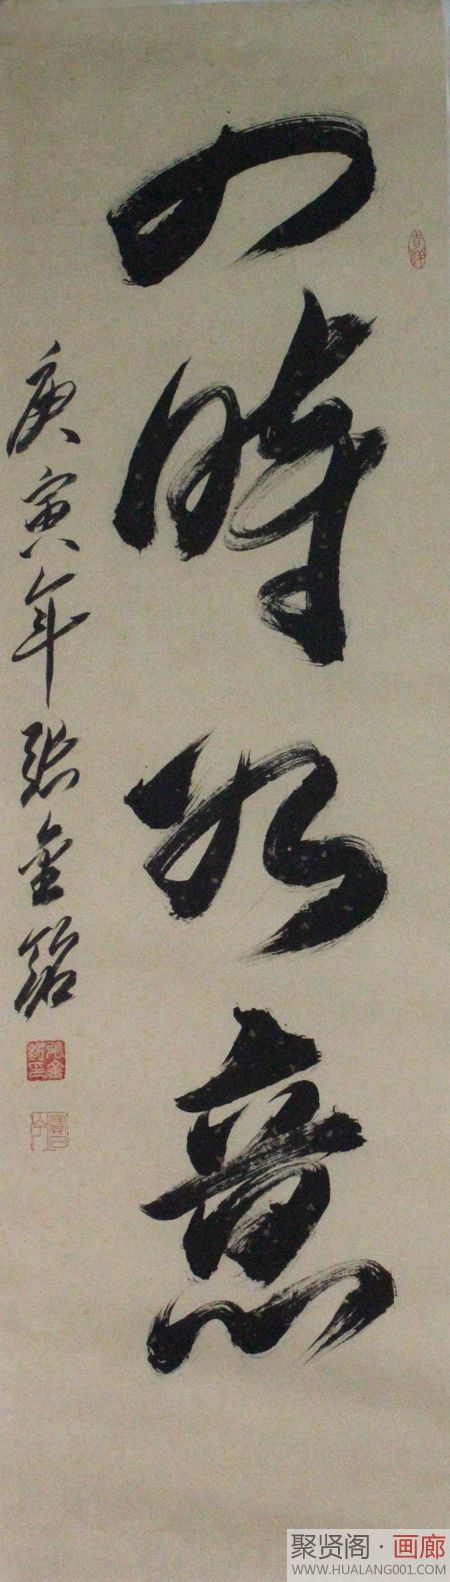 四时如意
庚寅年张金
聚贤阁·画廊
WWW.HUALANG001.COM